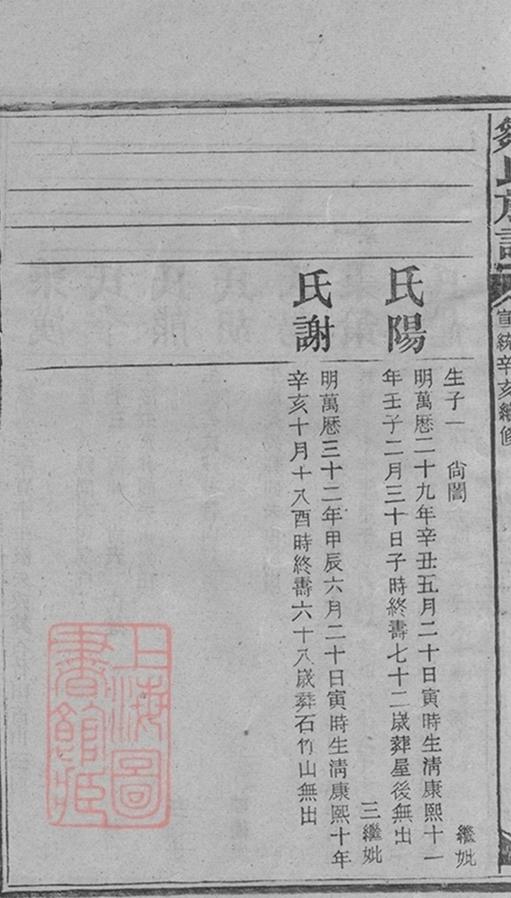 鄒氏族譜
宣統辛亥續修
生子一　尙誾　繼妣
陽氏
明萬曆二十九年辛丑五月二十日寅時生淸康熙十一
年壬子二月三十日子時終壽七十二歲葬屋後無出
三繼妣
謝氏
明萬曆三十二年甲辰六月二十日寅時生淸康熙十年
辛亥十月十八酉時終壽六十八歲葬石竹山無出
上海圖
書館藏